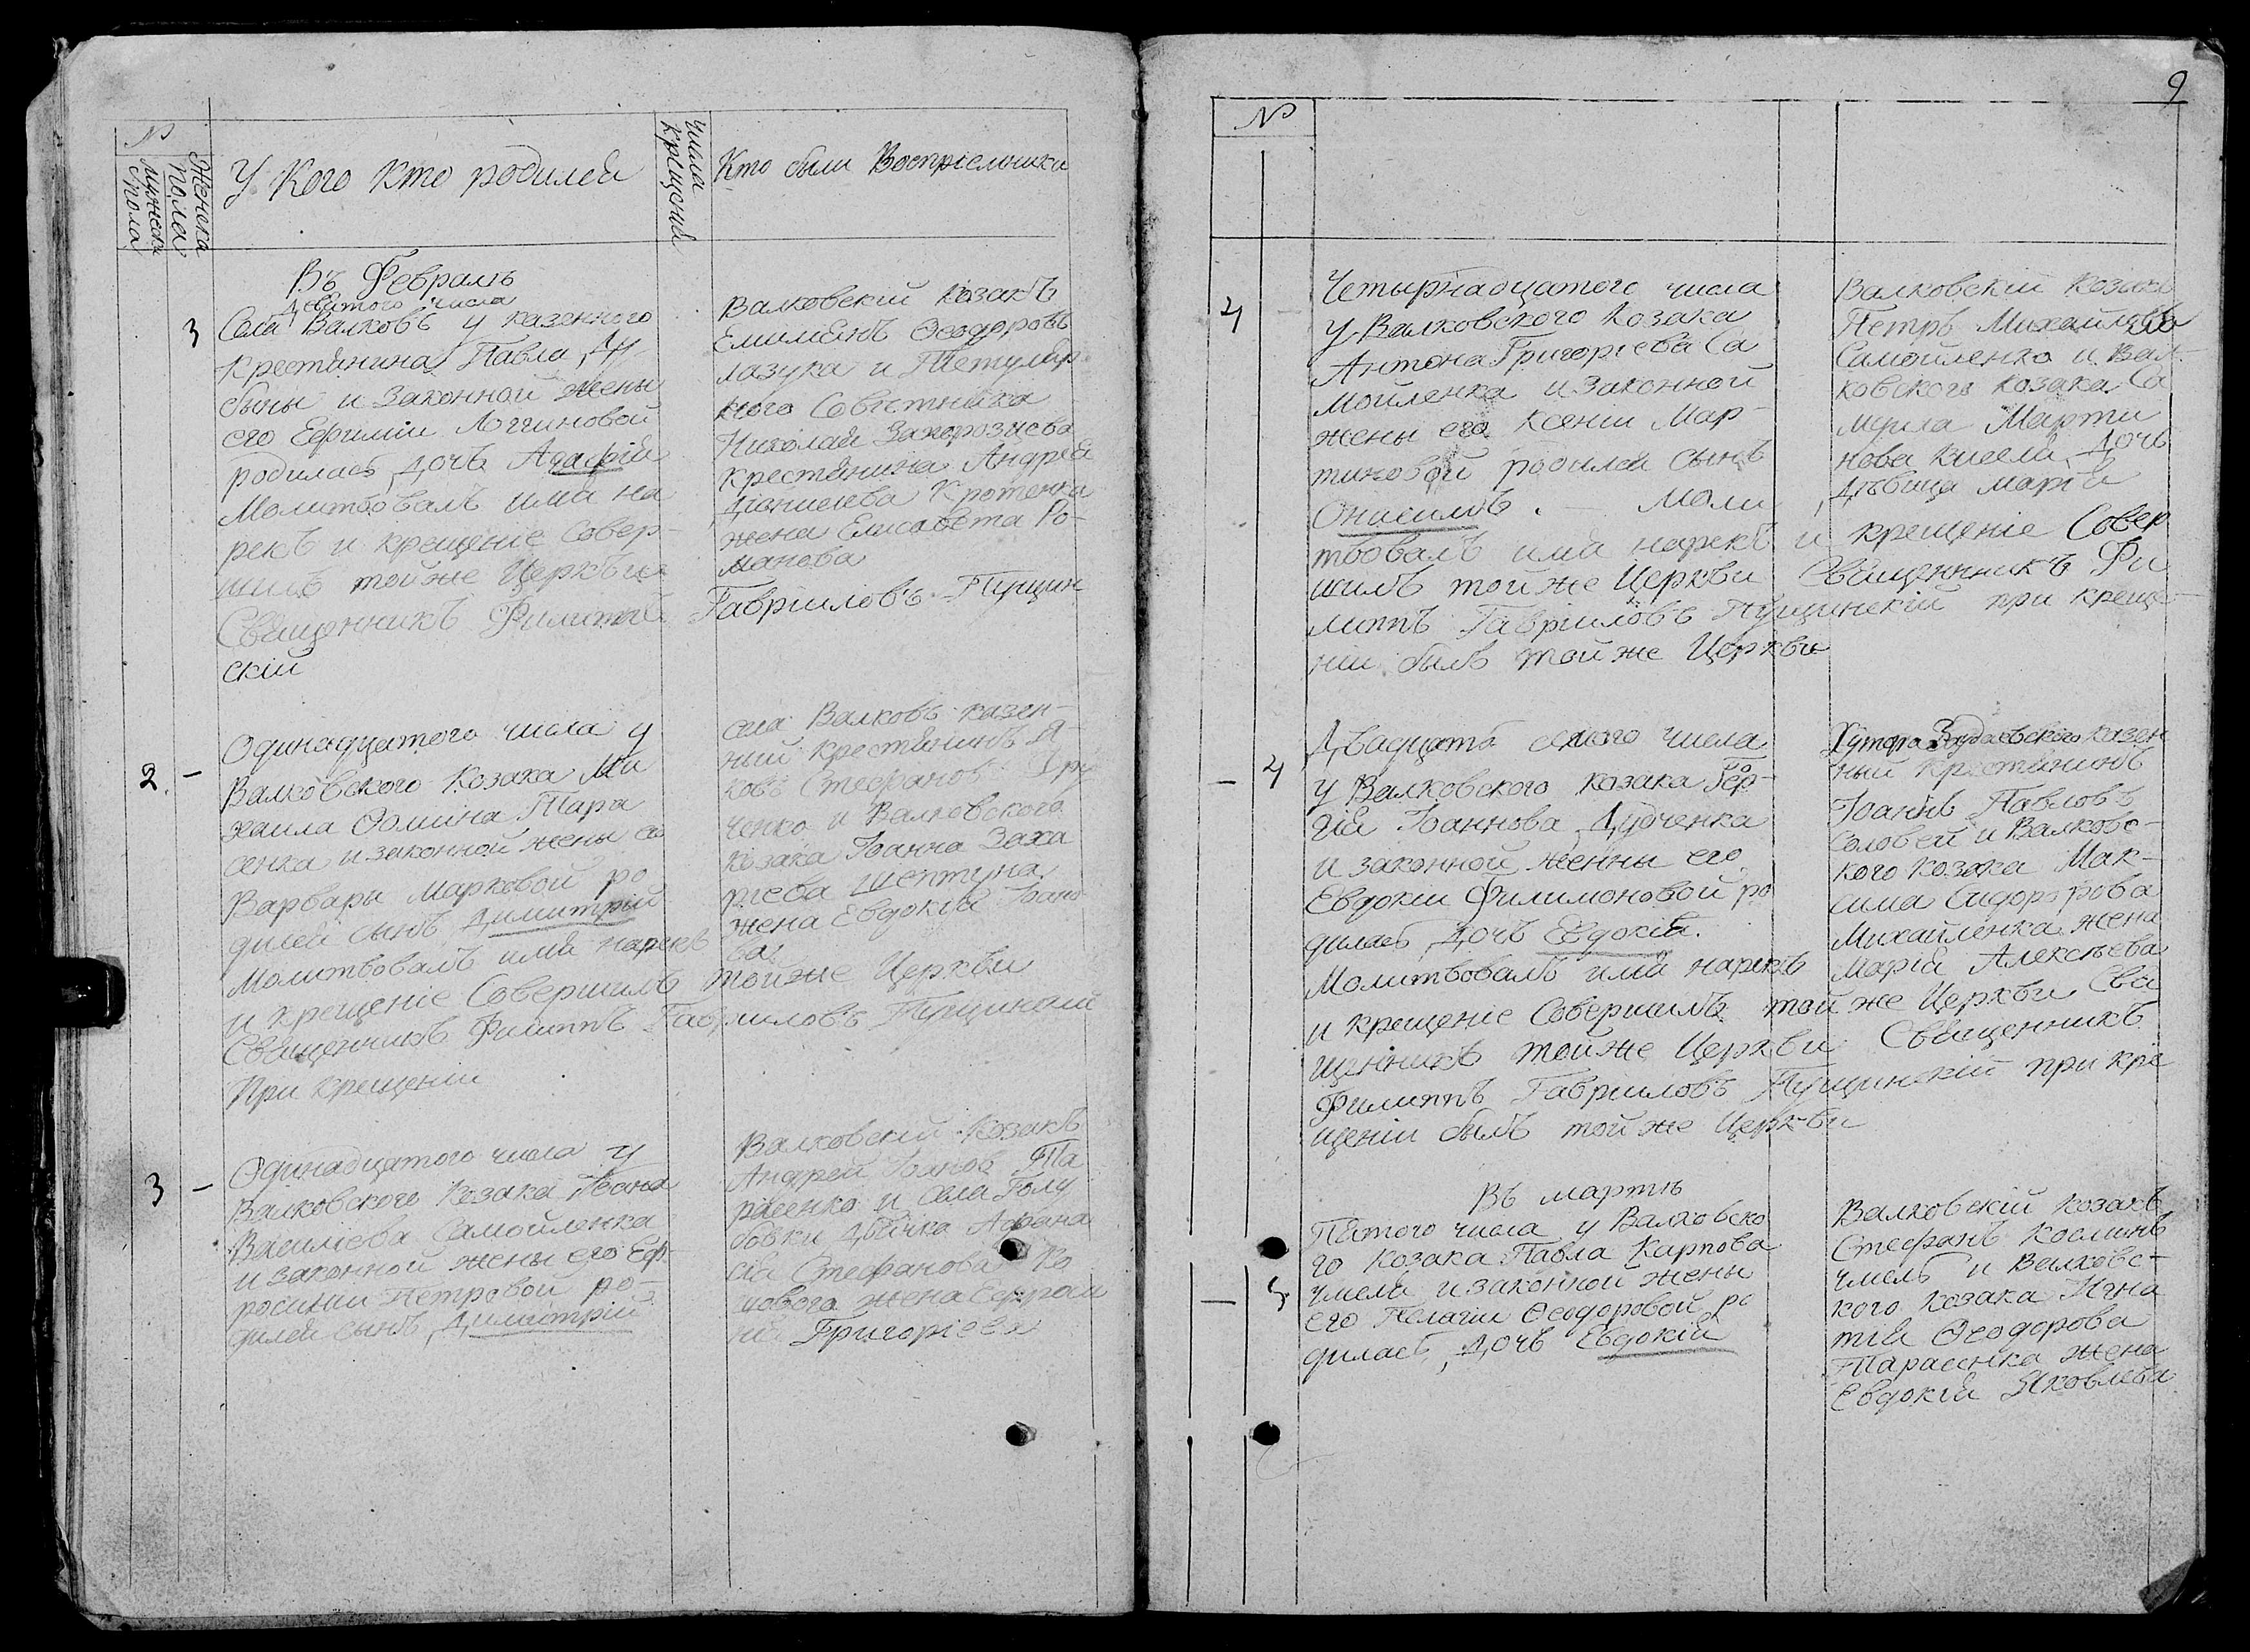 №
Мужеска пола
Женска пола
У Кого Кто родился
Числа крещений
Кто были Восприемники
Въ Февралѣ
Девятого числа
3
Села Валковъ у казенного
крестянина Павла Ду
бины и Законной жены
его Ефимии Логгиновой
родилась дочь Агафія
Молитвовалъ имя на
рекъ и крещеніе Совер-
шилъ тойже Церкви
Священникъ Филиппъ Гавріиловъ Пущин
скій
Валковскій Козакъ
Ѳеодоровъ
и Тетуляр
ного Совѣтника
Николая
Крестянина Андрея
Кротенка
жена Елисавета Ро-
манова
2 -
Одинадцатого числа у
Валковского Козака Ми
хаила Ѳомина Тара
сенка и законной жены его
Варвары Марковой ро
дился сынъ Димитрій
Молитвовалъ имя нарекъ
и крещеніе Совершилъ тойже Церкви
Священникъ Филиппъ Гавріиловъ Пущинскій
При крещеніи
села Валковъ казен-
ный крестянинъ Я-
ковъ Стефановъ
ченко и Валковского
козака Іоанна Заха
ріева Шептуна
жена Евдокія Іоано
ва
3 -
Одинадцатого числа у
Валковского Козака Іоана
Василіева Самойленка
и законной жены его Еф-
росиніи Петровой ро-
дился сынъ Димитрій
Валковскій Козакъ
Андрей Іоановъ Та
расенко и села Голу
бовки дьячка Афана
сія Стефанова
жена Ефроси
нія Григоріева
9
№
4
Четырнадцатого числа
у Валковского Козака
Антона Григоріева Са
мойленка и Законной
жены его Ксеніи Мар-
тиновой родился сынъ
Онисимъ. — Моли
твовалъ имя нарекъ и крещеніе Совер
шилъ тойже Церкви Священникъ Фи
липпъ Гавріиловъ Пущинскій при креще-
ніи былъ тойже Церкви
Валковскій Козакъ
Петръ Михайловъ
Самойленко и Вал-
ковского Козака Са
муила Марти
нова Киселя дочь
дѣвица Марія
- 4
Двадцать семого числа
у Валковского козака Геор-
гія Іоаннова Дудченка
и законной женны его
Евдокіи Филимоновой ро
дилась дочь Евдокія.
Молитвовалъ имя нарекъ
и крещеніе Совершилъ той же Церкви Свя
щенникъ тойже Церкви Священникъ
Филиппъ Гавріиловъ Пущинскій при кре
щеніи былъ той же Церкви
Хутора казен
ный Крестянинъ
Іоаннъ Павловъ
Соловей и Валковс-
кого козака Мак-
сима Сидоророва
Михайленка жена
Марія Алексѣева
Въ мартѣ
- 5
Пятого числа у Валковско
го козака Павла Карпова
Чмеля и законной жены
его Пелагіи Ѳеодоровой ро
дилась дочь Евдокія
Валковскій козакъ
Стефанъ Косминъ
Чмель и Валковс-
кого Козака Игна
тія Ѳеодорова
Тарасенка жена
Евдокія Яковлева